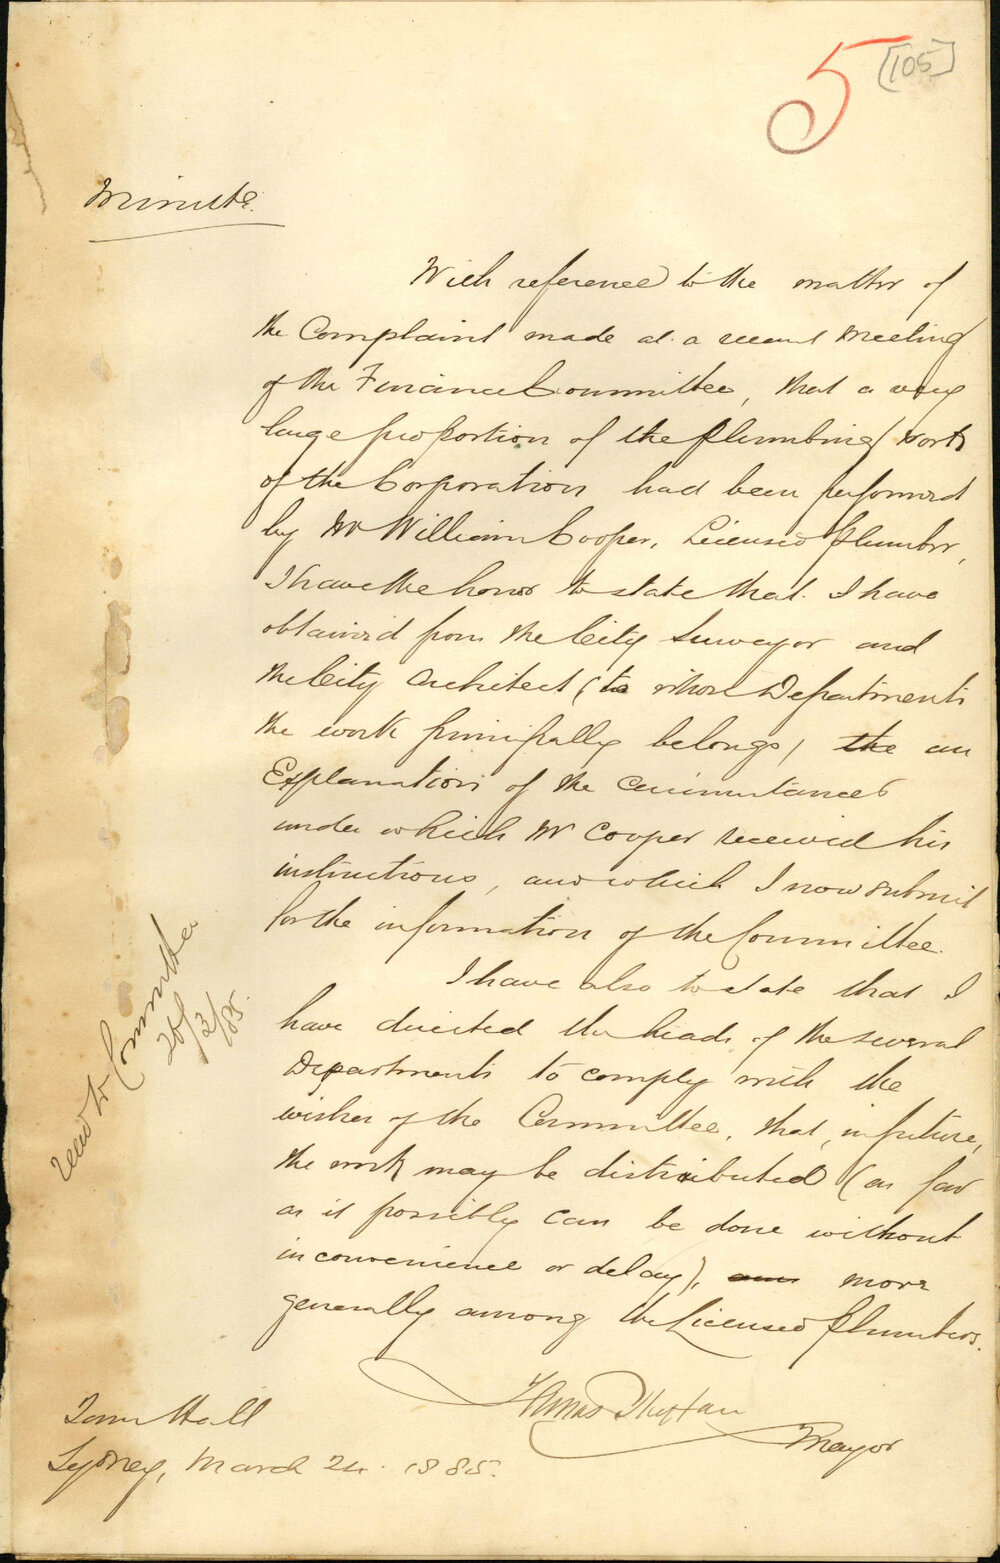 5 [105]
Minute.
With reference to the matter of
the Complaint made at a recent Meeting
of the Finance Committee, that a very
large proportion of the Plumbing work
of the Corporation had been performed
by Mr William Cooper, Licensed Plumber,
I have the honor to state that I have
obtained from the City Surveyor and
the City Architect (to whose Departments
the work principally belongs) the an
Explanation of the circumstances
under which Mr Cooper received his
instructions, and which I now submit
for the information of the Committee.
I have also to state that I
have directed the heads of the several
Departments to comply with the
wishes of the Committee, that, in future,
the work may be distributed (as far
as it possibly can be done without
inconvenience or delay), more
generally among the Licensed Plumbers.
Thomas Playfair
Mayor
Town Hall
Sydney, March 24. 1885.
to Committee
/3/85.